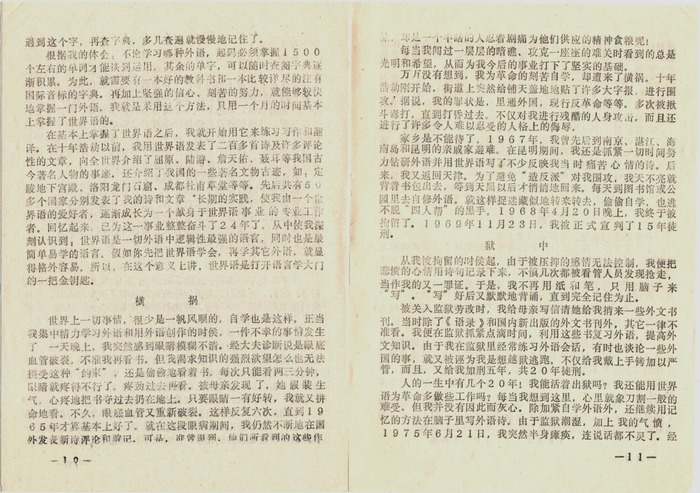 遇到这个字，再查字典，多几查遍就慢慢地记住了。
根据我的体会，不论学习哪种外语，起码必须掌握1500
个左右的单词才能谈到运用，其余的单字，可以随时查阅字典逐
渐积累。为此，就需要有一本好的教科书和一本比较详尽的注有
国际音标的字典，再加上坚强的信心、刻苦的努力，就能够较快
地掌握一门外语。我就是采用这个方法，只用一个月的时间基本
上掌握了世界语的。
在基本上掌握了世界语之后，我就开始用它来练习写作和翻
译。在十年浩劫以前，我用世界语发表了二百多首诗及许多评论
性的文章，向全世界介绍了屈原、陆游、詹天佑、聂耳等我国古
今著名人物的事迹，还介绍了我国的一些著名文物古迹，如，定
陵地下宫殿、洛阳龙门石窟、成都杜甫草堂等等。先后共有60
多个国家分别发表了我的诗和文章。长期的实践，使我由一个世
界语的爱好者，逐渐成长为一个献身于世界语事业的专业工作
者。回忆起来，已为这一事业整整奋斗了24年了，从中使我深
刻认识到：世界语是一切外语中逻辑性最强的语言，同时也是最
简单易学的语言，假如你先把世界语学会，再学其它外语，就显
得格外容易。所以，在这个意义上讲，世界语是打开语言学大门
的一把金钥匙。
横 祸
世界上一切事情，很少是一帆风顺的，自学也是这样。正当
我集中精力学习外语和用外语创作的时候，一件不幸的事情发生
了 一天晚上，我突然感到眼睛模糊不清，经大夫诊断说是眼底
血管破裂，不准我再看书。但我渴求知识的强烈欲望怎么也无法
接受这种“约束”，还是偷偷地看着书，每次只能看两三分钟，
眼睛就疼得不行了。疼劲过去再看。被母亲发现了，她假装生
气，心疼地把书夺过去扔在地上。只要眼睛一有好转，我就又拼
命地看。不久，眼底血管又重新破裂。这样反复六次，直到19
65年才算基本上好了。就在这段眼病期间，我仍然不断地在国
外发表新诗评论和游记。可是，谁曾想到，他们所看到的这些作
—10—
品，却是一个半瞎的人忍着剧痛为他们供应的精神食粮呢！
每当我闯过一层层的暗礁、攻克一座座的难关时看到的总是
光明和希望，从而为我今后的事业打下了坚实的基础。
万万没有想到，我为革命的刻苦自学，却遭来了横祸。十年
浩劫刚开始，街道上突然给铺天盖地地贴了许多大字报，进行围
攻。据说，我的罪状是，里通外国，现行反革命等等。多次被揪
斗毒打，直到打昏过去。不仅对我进行残酷的人身攻击，而且还
进行了许多令人难以忍受的人格上的侮辱。
家乡是不能待了，1967年，我曾先后到南京、湛江、海
南岛和昆明的亲戚家避难。在昆明期间，我还是抓紧一切时间努
力钻研外语并用世界语写了不少反映我当时痛苦心情的诗。后
来，我又返回天津。为了避免“造反派”对我围攻，我天不亮就
背着书包出去，等到天黑以后才悄悄地回来。每天到图书馆或公
园里去自修外语。就这样捉迷藏似地转来转去，偷偷自学，也逃
不脱“四人帮”的黑手。1968年4月20日晚上，我终于被
拘留了。1969年11月23日，我被正式宣判了15年徒
刑。
狱 中
从我被拘留的时候起，由于被压抑的感情无法控制，我便把
悲愤的心情用诗句记录下来，不慎几次都被看管人员发现抢走，
当作我的又一罪证。于是，我不再用纸和笔，只用脑子来
“写”。“写”好后又默默地背诵，直到完全记住为止。
被关入监狱劳改时，我给母亲写信请她给我捎来一些外文书
刊，当时除了《语录》和国内新出版的外文书刊外，其它一律不
准看。我便在监狱抓紧点滴时间，利用这些书复习外语，提高外
文知识。由于我在监狱里经常练习外语会话，有时也谈论一些外
国的事，就又被诬为我是想越狱逃跑，不仅给我戴上手铐加以严
管，而且，又给我加刑五年，共20年徒刑。
人的一生中有几个20年：我能活着出狱吗？我还能用世界
语为革命多做些工作吗？每当我想到这里，心里就象刀割一般的
难受。但我并没有因此而灰心。除加紧自学外语外，还继续用记
忆的方法在脑子里写外语诗。由于监狱潮湿，加上我的气愤，
1975年6月21日，我突然半身瘫痪，连说话都不灵了。经
—11—